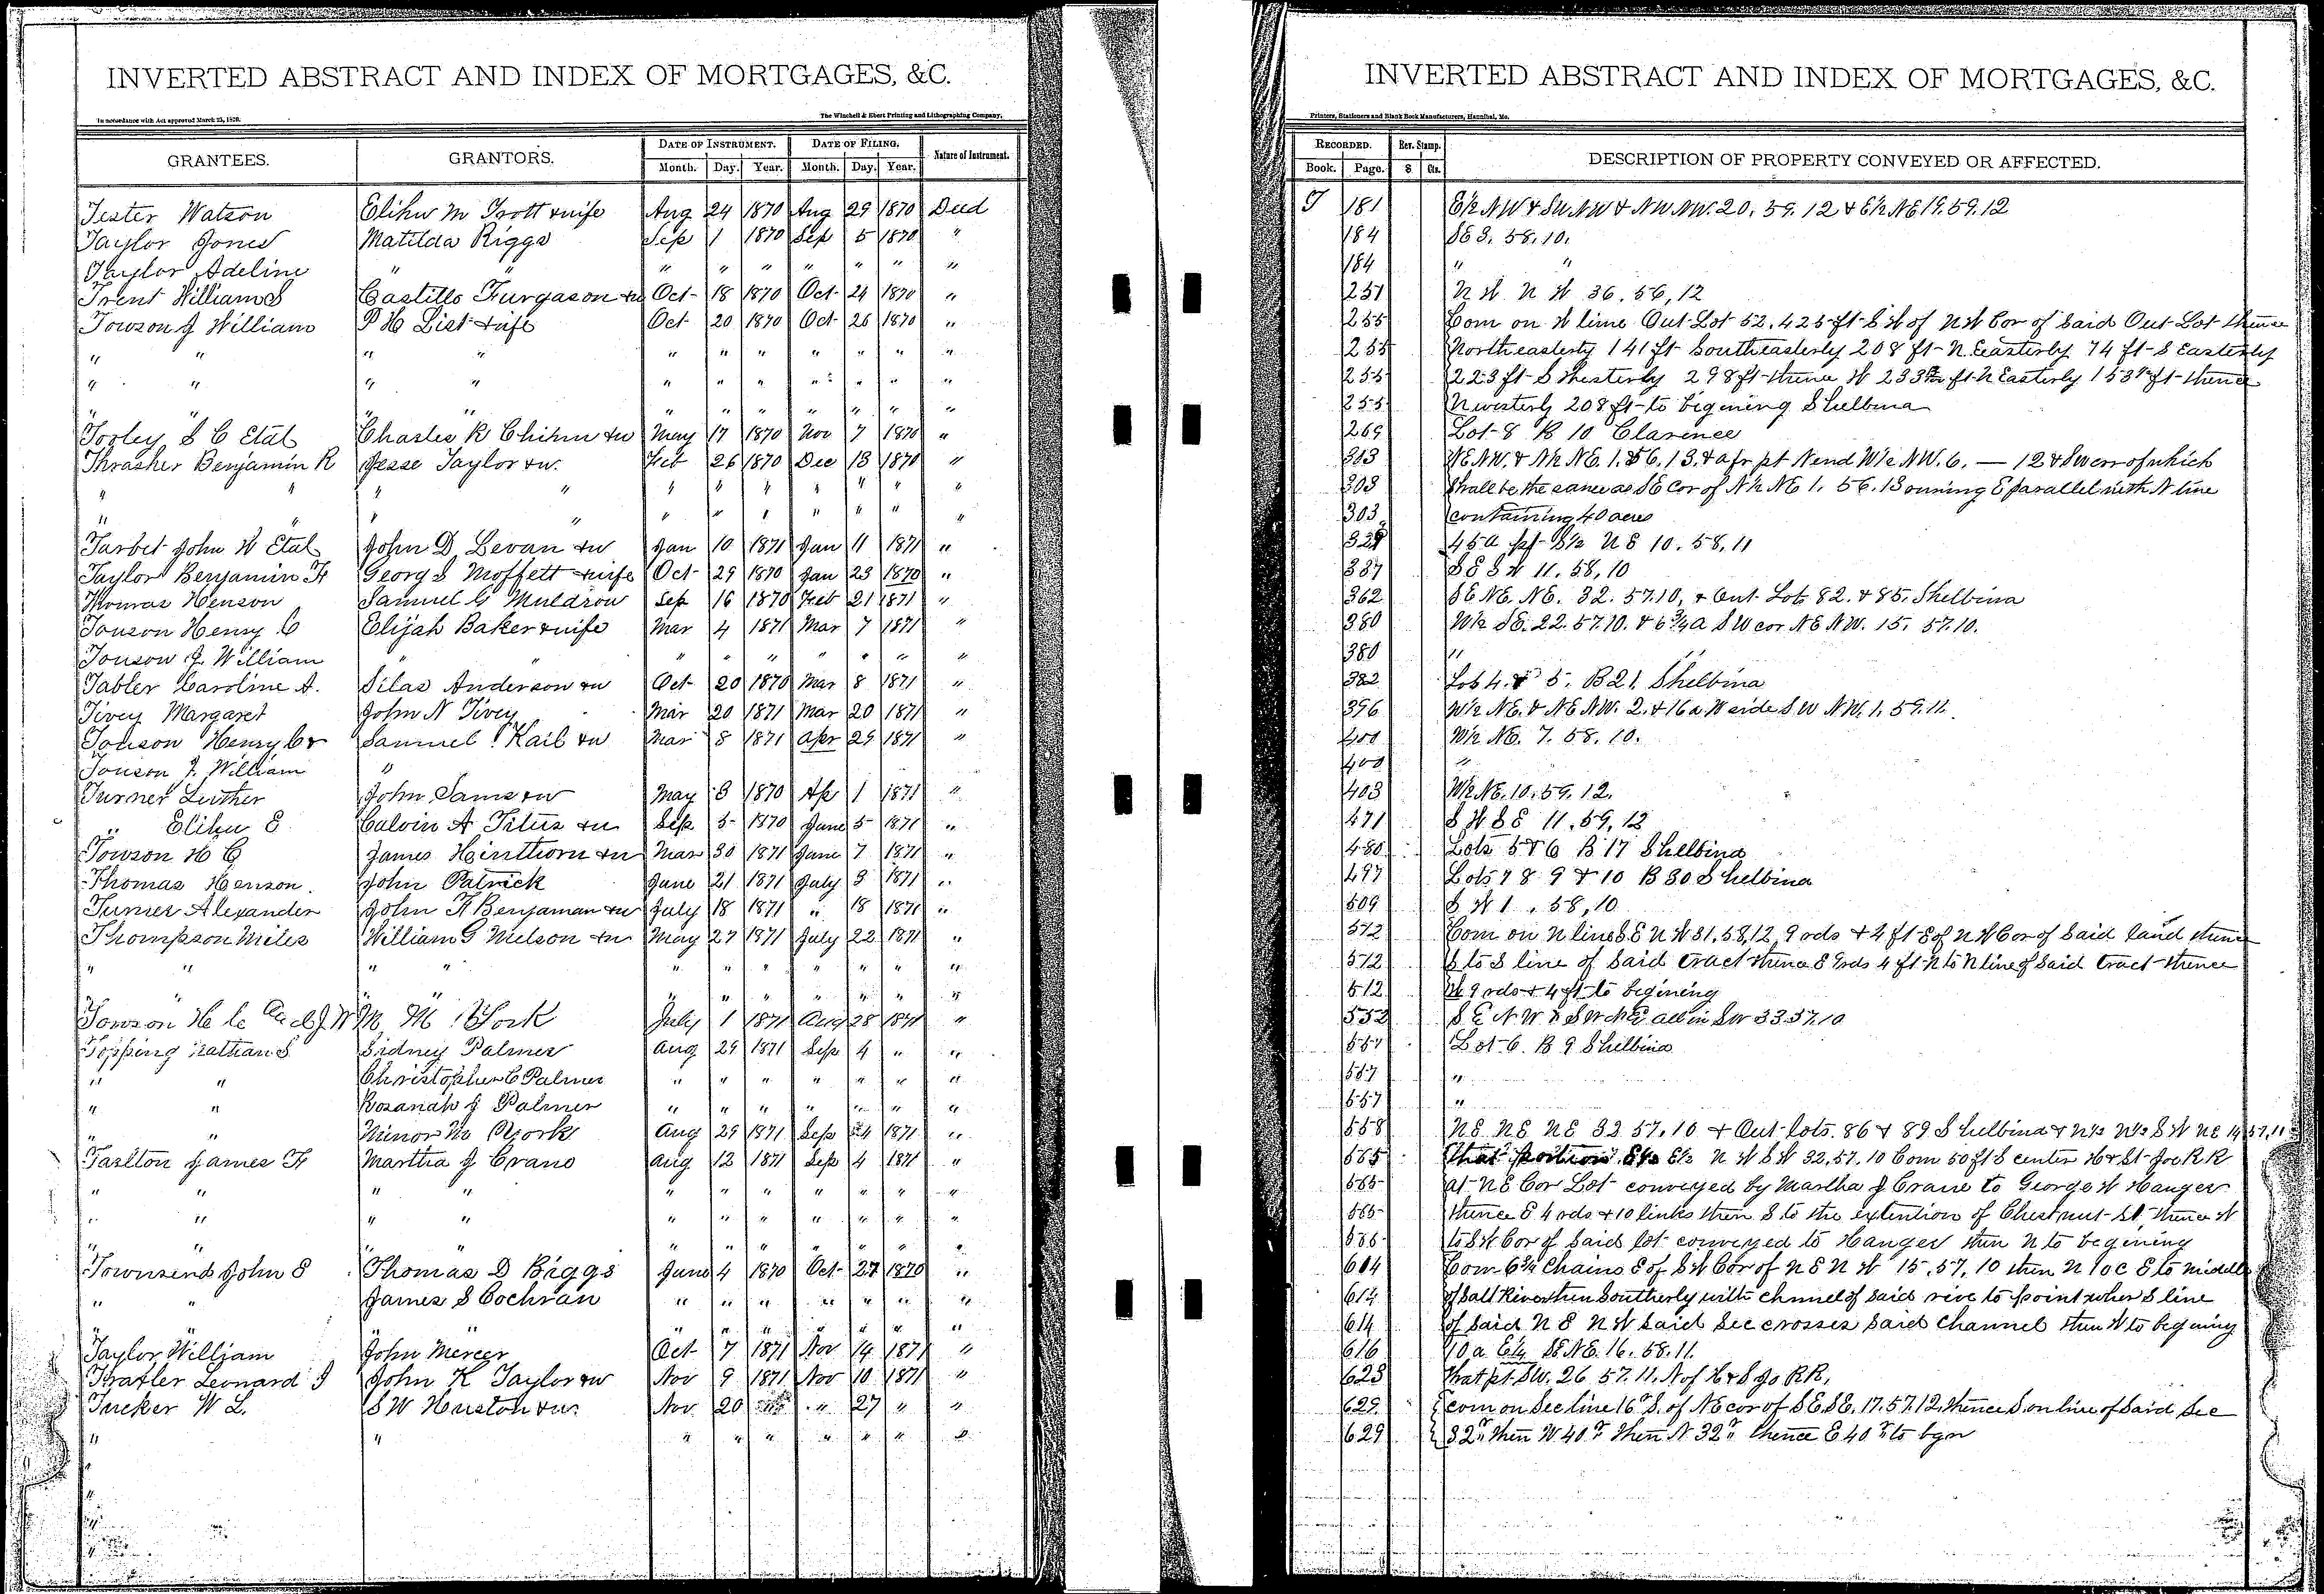 INVERTED ABSTRACT AND INDEX OF MORTGAGES, &C.
In accordance with Act approved March 25, 1870.
The Winchell & Ebert Printing and Lithographing Company,
GRANTEES. GRANTORS. DATE OF INSTRUMENT. DATE OF FILING. Nature of Instrument.
Month. Day. Year. Month. Day. Year.
Tester Watson Elihu M Trott & wife Aug 24 1870 Aug 29 1870 Deed
Taylor Jones Matilda Riggs Sep 1 1870 Sep 5 1870 "
Taylor Adeline " " " " " " " " "
Trent William S Castillo Furgason & w Oct 18 1870 Oct 24 1870 "
Towson J William P H List & wife Oct 20 1870 Oct 26 1870 "
" " " " " " " " " " "
" " " " " " " " " " "
" " " " " " " " " "
Tooley S C Etal Charles R Chihn & w May 17 1870 Nov 7 1870 "
Thrasher Benjamin R Jesse Taylor & w. Feb 26 1870 Dec 13 1870 "
" " " " " " " " " " "
" " " " " " " " " "
Tarbet John W Etal John D Levan & w Jan 10 1871 Jan 11 1871 "
Taylor Benjamin F Georg S Moffett & wife Oct 29 1870 Jan 23 1870 "
Thomas Henson Samuel G Muldrow Sep 16 1870 Feb 21 1871 "
Touson Henry C Elijah Baker & wife Mar 4 1871 Mar 7 1871 "
Touson J. William " " " " " " " " "
Tabler Caroline A. Silas Anderson & w Oct 20 1870 Mar 8 1871 "
Tivey Margaret John N Tivey Mar 20 1871 Mar 20 1871 "
Touson Henry C & Samuel Kail & w Mar 8 1871 Apr 29 1871 "
Touson J. William "
Turner Luther John Sams & w May 3 1870 Ap 1 1871 "
" Elihu E. Calvin A Titus & w Sep 5 1870 June 5 1871 "
Towson H C James Hinthorn & w Mar 30 1871 June 7 1871 "
Thomas Henson. John Patrick June 21 1871 July 3 1871 "
Turner Alexander John F Benjaman & w July 18 1871 " 18 1871 "
Thompson Miles William G Nelson & w May 27 1871 July 22 1871 "
" " " " " " " " " " "
" " " " " " " " " "
Towson H C And J W M M York July 1 1871 Aug 28 1871 "
Topping Nathan S Sidney Palmer Aug 29 1871 Sep 4 " "
" " Christopher C Palmer " " " " " " "
" " Rosanah J Palmer " " " " " " "
" " Minor M York Aug 29 1871 Sep 4 1871 "
Tarlton James H Martha J Crane Aug 12 1871 Sep 4 1871 "
" " " " " " " " " " "
" " " " " " " " " " "
" " " " " " " " " " "
Townsend John E Thomas D Biggs June 4 1870 Oct 27 1870 "
" " James S Cochran " " " " " " "
" " " " " " " " "
Taylor William John Mercer Oct 7 1871 Nov 14 1871 "
Leonard J John K Taylor & w Nov 9 1871 Nov 10 1871 "
Tucker W L. S W Huston & w. Nov 20 " 27 " "
" " " " " " " " "
INVERTED ABSTRACT AND INDEX OF MORTGAGES, &C.
Printers, Stationers and Blank Book Manufacturers, Hannibal, Mo.
RECORDED. Rev. Stamp. DESCRIPTION OF PROPERTY CONVEYED OR AFFECTED.
Book. Page. $ Cts.
T 181 E½ NW & SW NW & NW NW. 20. 59. 12 & E½ NE 19. 59. 12
184 SE 3. 58. 10.
184 " "
251 N W N W 36. 56, 12
255 Com on W line Out Lot 52. 425 ft S W of N W Cor of Said Out Lot thence
255 Northeasterly 141 ft Southeasterly 208 ft N Easterly 74 ft S Easterly
255 223 ft S Westerly 298 ft thence W 233 ft N Easterly 153 ft thence
255 N westerly 208 ft to begining Shelbina
269 Lot 8 B 10 Clarence
303 NE NW. & N½ NE. 1. 56. 13. & a fr pt N end W½ NW. 6. — 12 & SW cor of which
303 shall be the same as SE cor of N½ NE 1. 56. 13 running E parallel with N line
303 containing 40 acres
329 45 a pt S½ N E 10. 58, 11
337 S E S W 11. 58, 10
362 SE NE. NE. 32. 57. 10, & Out Lots 82. & 85. Shelbina
380 W½ SE. 22. 57. 10. & 6¾ a SW cor NE NW. 15. 57. 10.
380 "
382 Lots 4. & 5. B 21. Shelbina
396 W½ NE. & NE NW. 2. & 16 a W side SW NW. 1. 59. 11.
400 W½ NE. 7. 58. 10.
400 "
403 W½ NE. 10. 59. 12.
471 S W S E 11. 59, 12
480 Lots 5 & 6 B 17 Shelbina
497 Lots 7 8 9 & 10 B 30 Shelbina
509 S W 1. 58, 10
512 Com on N line S E N W 31. 58, 12, 9 rds & 4 ft E of N W Cor of Said land thence
512 S to S line of Said tract thence E 9 rds 4 ft N to N line of Said tract thence
512 W 9 rds & 4 ft to begining
552 S E N W & SW NE all in SW 33. 57. 10
557 Lot 6. B 9 Shelbina
557 "
557 "
558 NE NE NE 32 57. 10 & Out lots. 86 & 89 Shelbina & N½ N½ S W NE 14 57, 11
565 That portion E½ N W S W 32, 57. 10 Com 50 ft S center H & St Joe R R
565 at NE Cor Lot conveyed by Martha J Crane to George W Hanger
565 thence E 4 rds & 10 links then S to the extention of Chestnut St, thence W
565 to S W Cor of Said lot conveyed to Hanger then N to begining
614 Com 6¾ Chains E of S W Cor of N E N W 15, 57, 10 then N 10 C E to middle
614 of Salt River then Southerly with chnnel of said rive to point wher S line
614 of Said N E N W Said Sec crosses Said Channel then W to begining
616 10 a. E¼ SE NE. 16. 58. 11.
623 That pt. SW. 26 57. 11. N of H & S Jo RR,
629 com on Sec line 16 r S. of NE cor of SE SE. 17. 57. 12, thence S. on line of Said Sec
629 32 r then W 40 r then N 32 r thence E 40 r to bgn